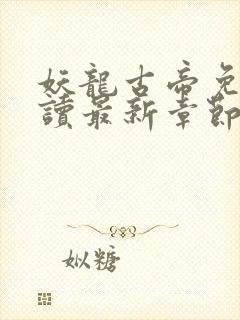 妖龍古帝免
讀最新章節
姒糖